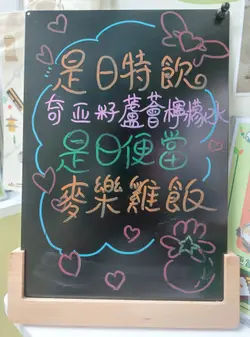 是日特飲
奇亞籽蘆薈檸檬水
是日便當
麥樂雞飯